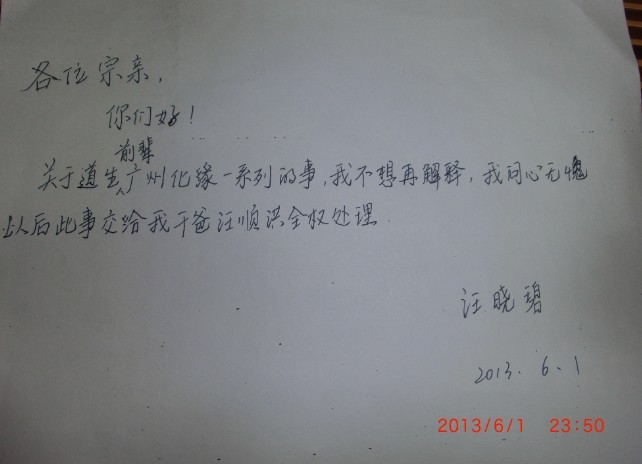 各位宗亲，
你们好！
前辈
关于道生广州化缘一系列的事，我不想再解释，我问心无愧
以后此事交给我干爸汪顺洪全权处理.
汪晓碧
2013. 6. 1
2013/6/1 23:50